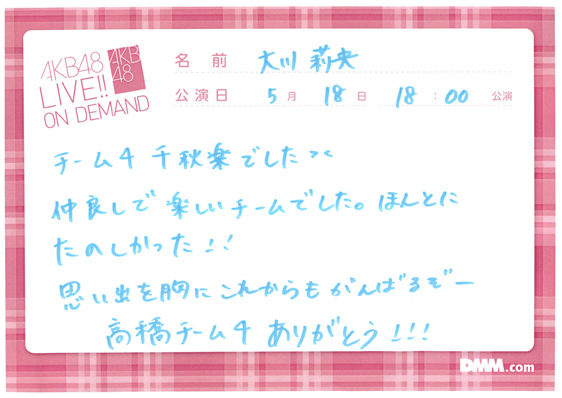 AKB48
LIVE!!
ON DEMAND
AKB
48
名前 大川莉央
公演日 5月18日 18:00 公演
チーム4 千秋楽でした><
仲良しで楽しいチームでした。ほんとに
たのしかった!!
思い出を胸にこれからもがんばるぞー
高橋チーム4 ありがとう!!!
DMM.com